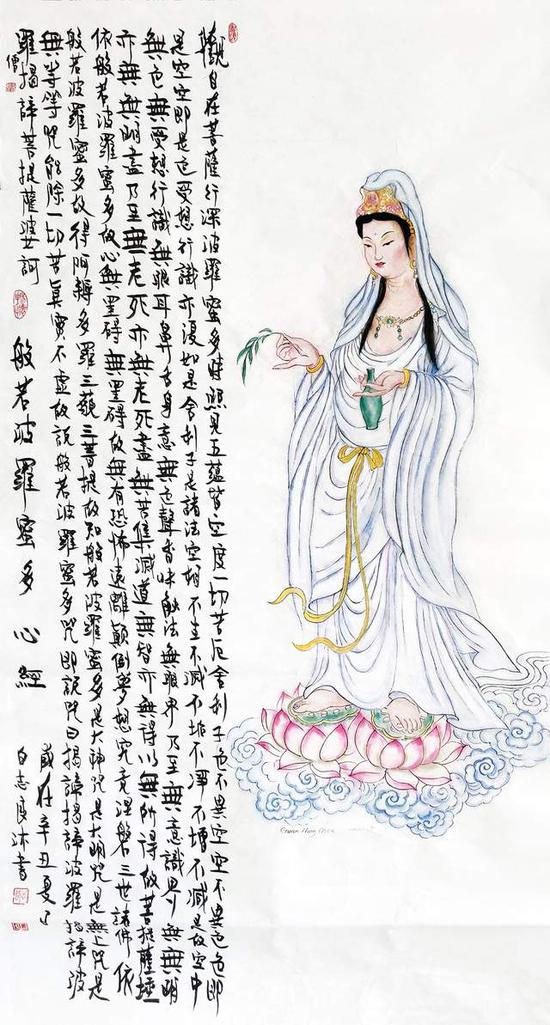 觀自在菩薩行深波羅蜜多時照見五蘊皆空度一切苦厄舍利子色不異空空不異色色即
是空空即是色受想行識亦復如是舍利子是諸法空相不生不滅不垢不淨不增不減是故空中
無色無受想行識無眼耳鼻舌身意無色聲香味觸法無眼界乃至無意識界無無明
亦無無明盡乃至無老死亦無老死盡無苦集滅道無智亦無得以無所得故菩提薩埵
依般若波羅蜜多故心無罣礙無罣礙故無有恐怖遠離顛倒夢想究竟涅槃三世諸佛依
般若波羅蜜多故得阿耨多羅三藐三菩提故知般若波羅蜜多是大神咒是大明咒是無上咒是
無等等咒能除一切苦真實不虛故說般若波羅蜜多咒即說咒曰揭諦揭諦波羅揭諦波
羅揭諦菩提薩婆訶
僧
般若波羅蜜多心經
歲在辛丑夏
白志度沐書